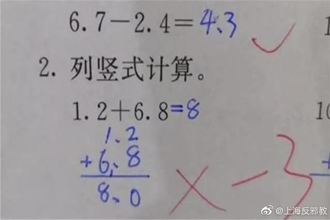 6.7-2.4=4.3
2. 列竖式计算。
1.2+6.8=8
1.2
+6.8
8.0
×-3
@上海反邪教